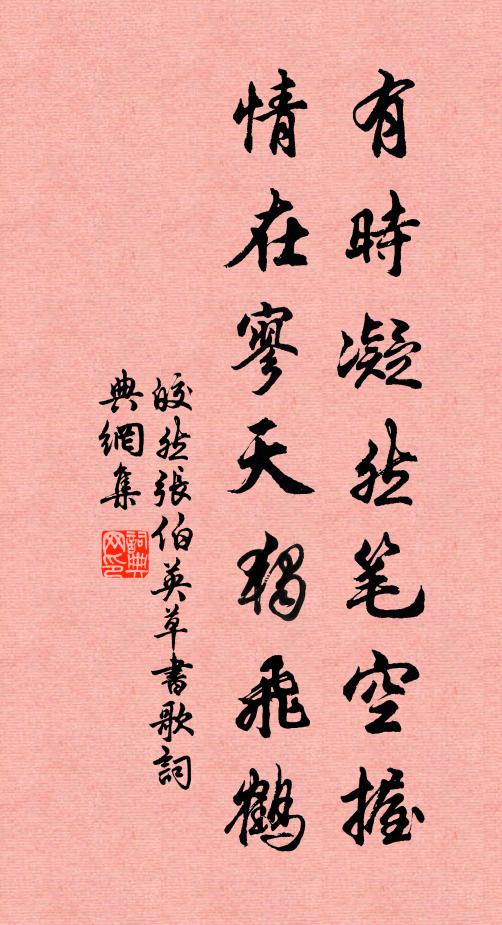 有時凝然笔空握
情在寥天獨飛鶴
皎然張伯英草書歌詞
典網集
詞典
网印